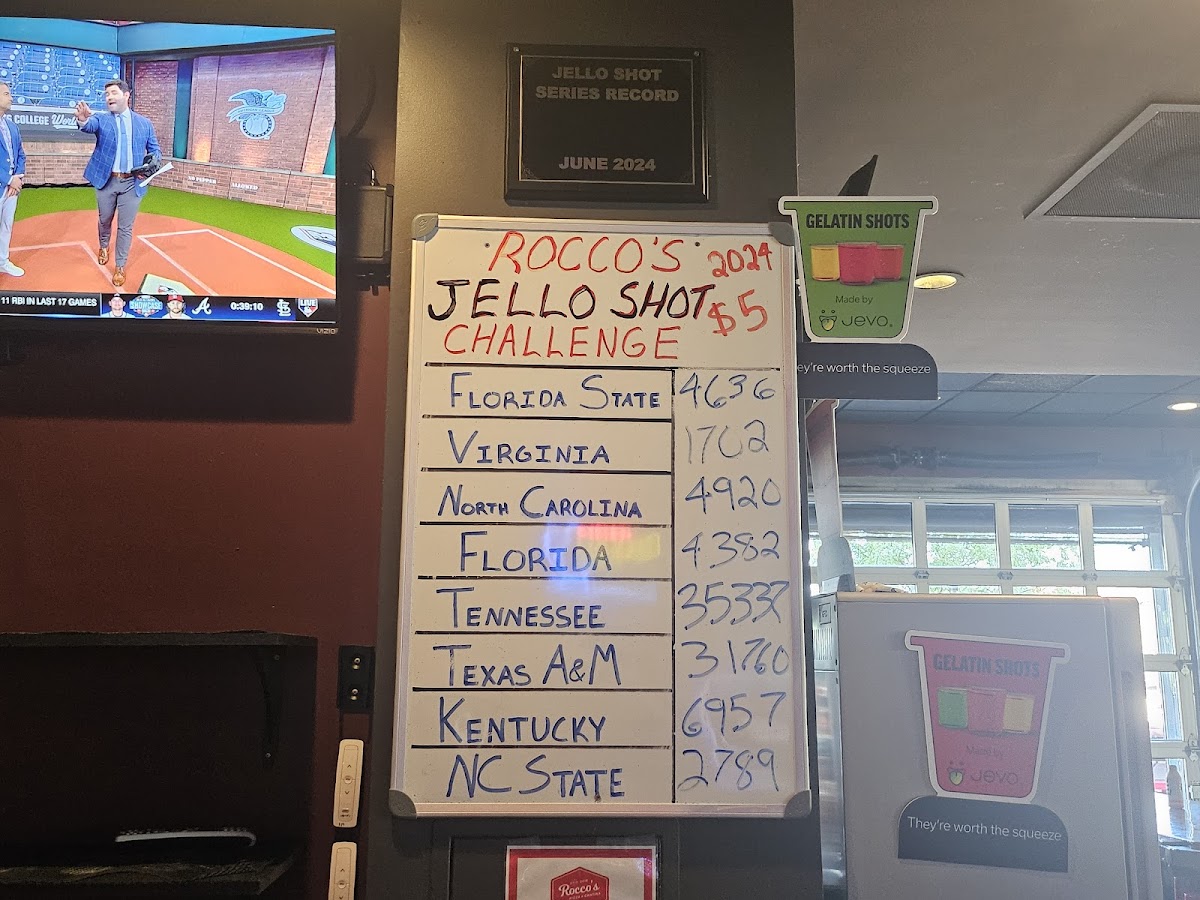 JELLO SHOT
SERIES RECORD
JUNE 2024
S COLLEGE World
11 RBI IN LAST 17 GAMES
SHOWCASE
A
0:39:10
LIVE
VIZIO
ROCCO'S 2024
JELLO SHOT $5
CHALLENGE
FLORIDA STATE 4636
VIRGINIA 1702
NORTH CAROLINA 4920
FLORIDA 4382
TENNESSEE 35337
TEXAS A&M 31760
KENTUCKY 6957
NC STATE 2789
GELATIN SHOTS
Made by
Jevo
ey're worth the squeeze
GELATIN SHOTS
Made by
Jevo
They're worth the squeeze
Rocco's